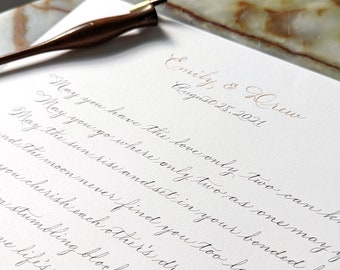 Emily & Drew
August 28, 2021
May you have the love only two can
May you go where only two as one may
May the sun rise and set in your bonded
and the moon never find you too
you cherish each other's
stumbling
life's